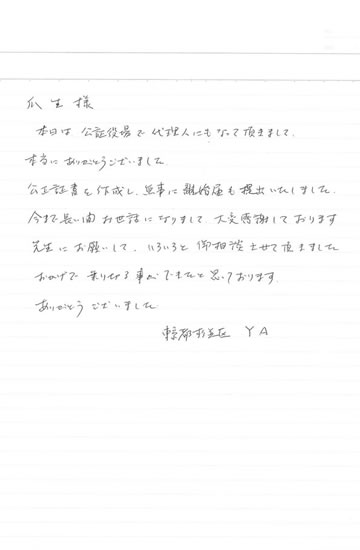 瓜生様
本日は、公証役場で代理人にもなって頂きまして、
本当にありがとうございました。
公正証書を作成し、無事に離婚届も提出いたしました。
今まで長い間お世話になりまして、大変感謝しております
先生にお願いして、いろいろと御相談させて頂きました
おかげで乗りきる事ができたと思っております。
ありがとうございました。
東京都杉並区 YA